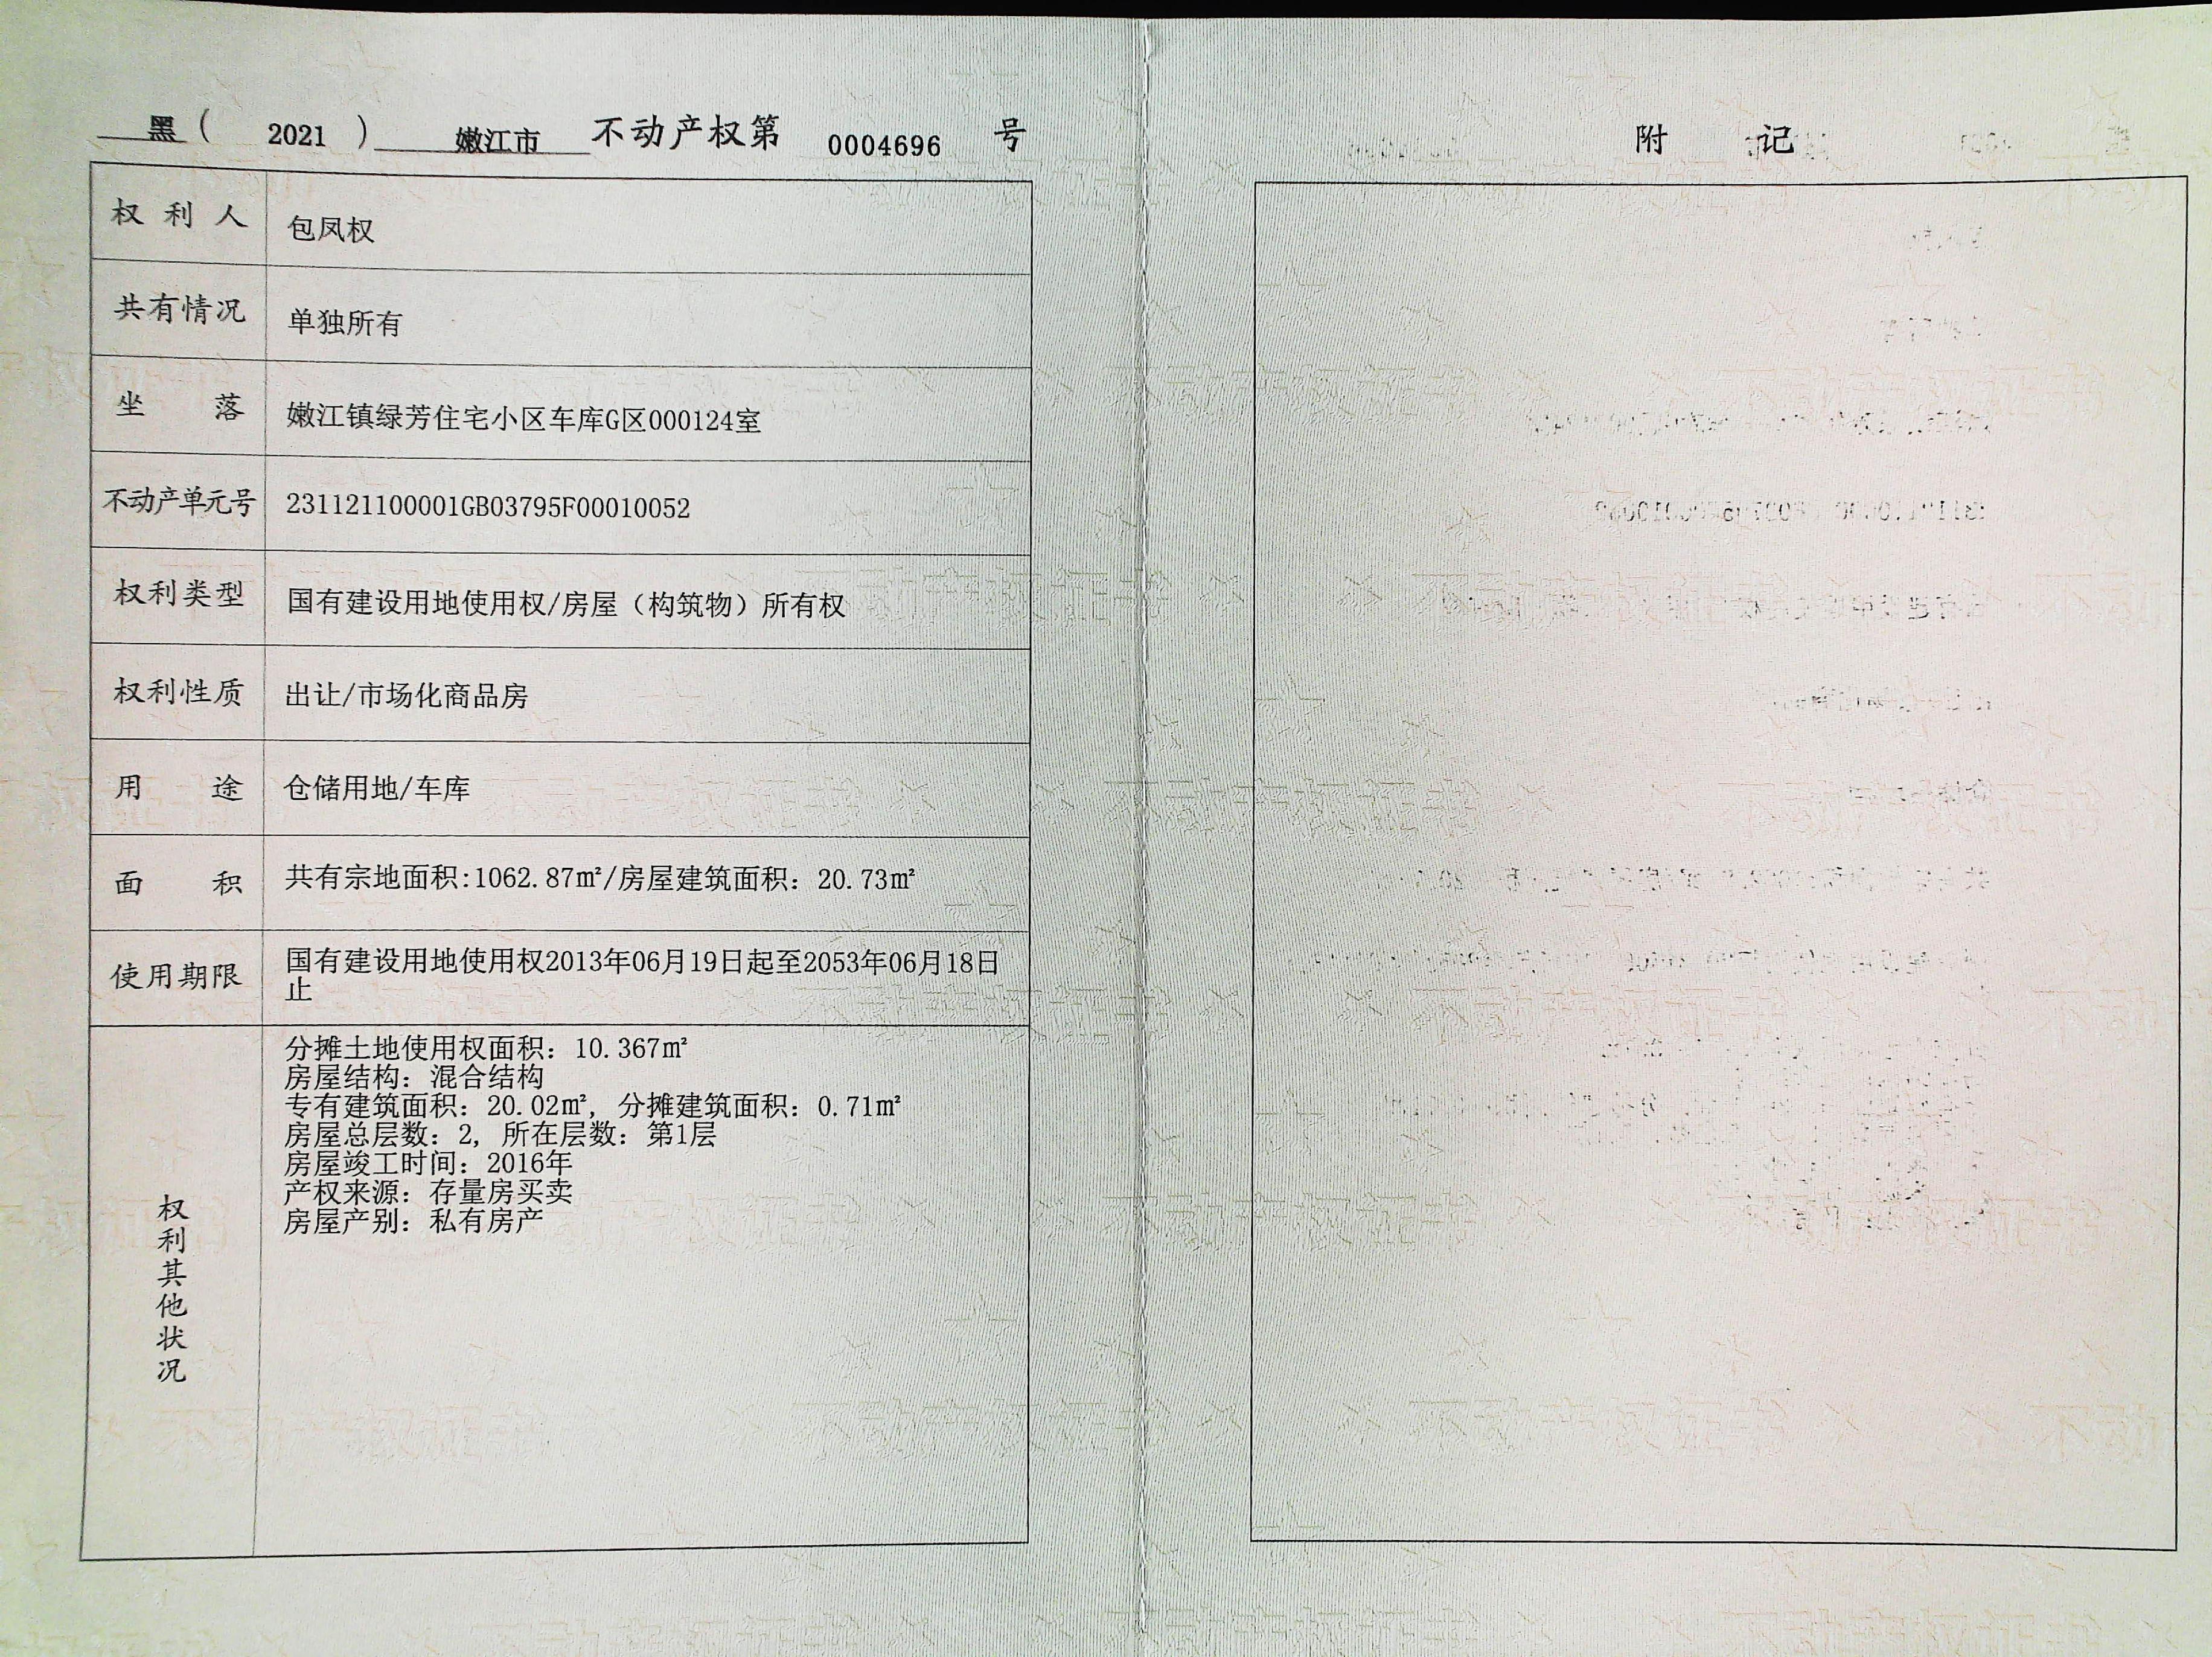 黑（ 2021 ） 嫩江市 不动产权第 0004696 号
权利人 包凤权
共有情况 单独所有
坐落 嫩江镇绿芳住宅小区车库G区000124室
不动产单元号 231121100001GB03795F00010052
权利类型 国有建设用地使用权/房屋（构筑物）所有权
权利性质 出让/市场化商品房
用途 仓储用地/车库
面积 共有宗地面积:1062.87㎡/房屋建筑面积：20.73㎡
使用期限 国有建设用地使用权2013年06月19日起至2053年06月18日
止
权利其他状况
分摊土地使用权面积：10.367㎡
房屋结构：混合结构
专有建筑面积：20.02㎡，分摊建筑面积：0.71㎡
房屋总层数：2，所在层数：第1层
房屋竣工时间：2016年
产权来源：存量房买卖
房屋产别：私有房产
附记